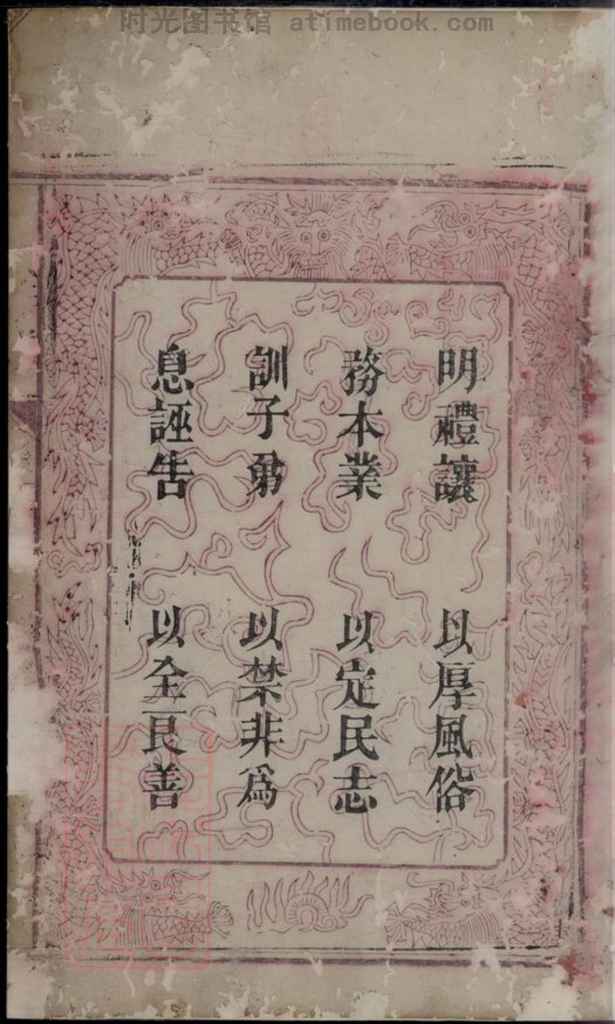 时光图书馆 atimebook.com
明禮讓 以厚風俗
務本業 以定民志
訓子弟 以禁非爲
息誣告 以全良善